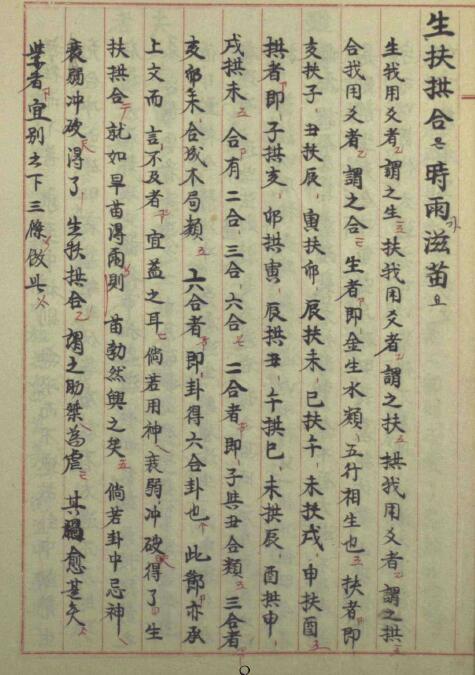 生扶拱合는 時雨滋苗요
生我用爻者 謂之生 扶我用爻者 謂之扶 拱我用爻者 謂之拱
合我用爻者 謂之合 生者 即金生水類 五行相生也 扶者 即
亥扶子 丑扶辰 寅扶卯 辰扶未 巳扶午 未扶戌 申扶酉
拱者 即子拱亥 卯拱寅 辰拱丑 午拱巳 未拱辰 酉拱申
戌拱未 合有二合 三合 六合 二合者 即子與丑合類 三合者
亥卯未 合成木局類 六合者 即卦得六合卦也 此節亦承
上文而言 不及者 宜益之耳 倘若用神衰弱冲破 得了生
扶拱合 就如旱苗得雨 則苗勃然興之矣 倘若卦中忌神
衰弱冲破 得了生扶拱合 謂之助桀為虐 其禍愈甚矣
學者宜別之 下三條倣此